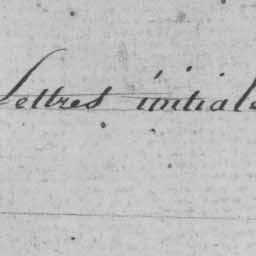 Lettres initiale